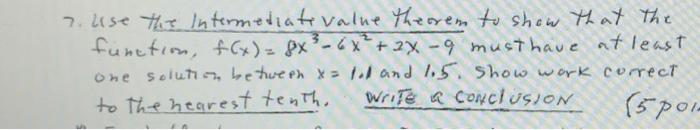 7. Use the Intermediate value theorem to show that the
function, f(x) = 8x³-6x²+2x-9 must have at least
one solution between x = 1.1 and 1.5. Show work correct
to the nearest tenth. Write a conclusion (5 poi